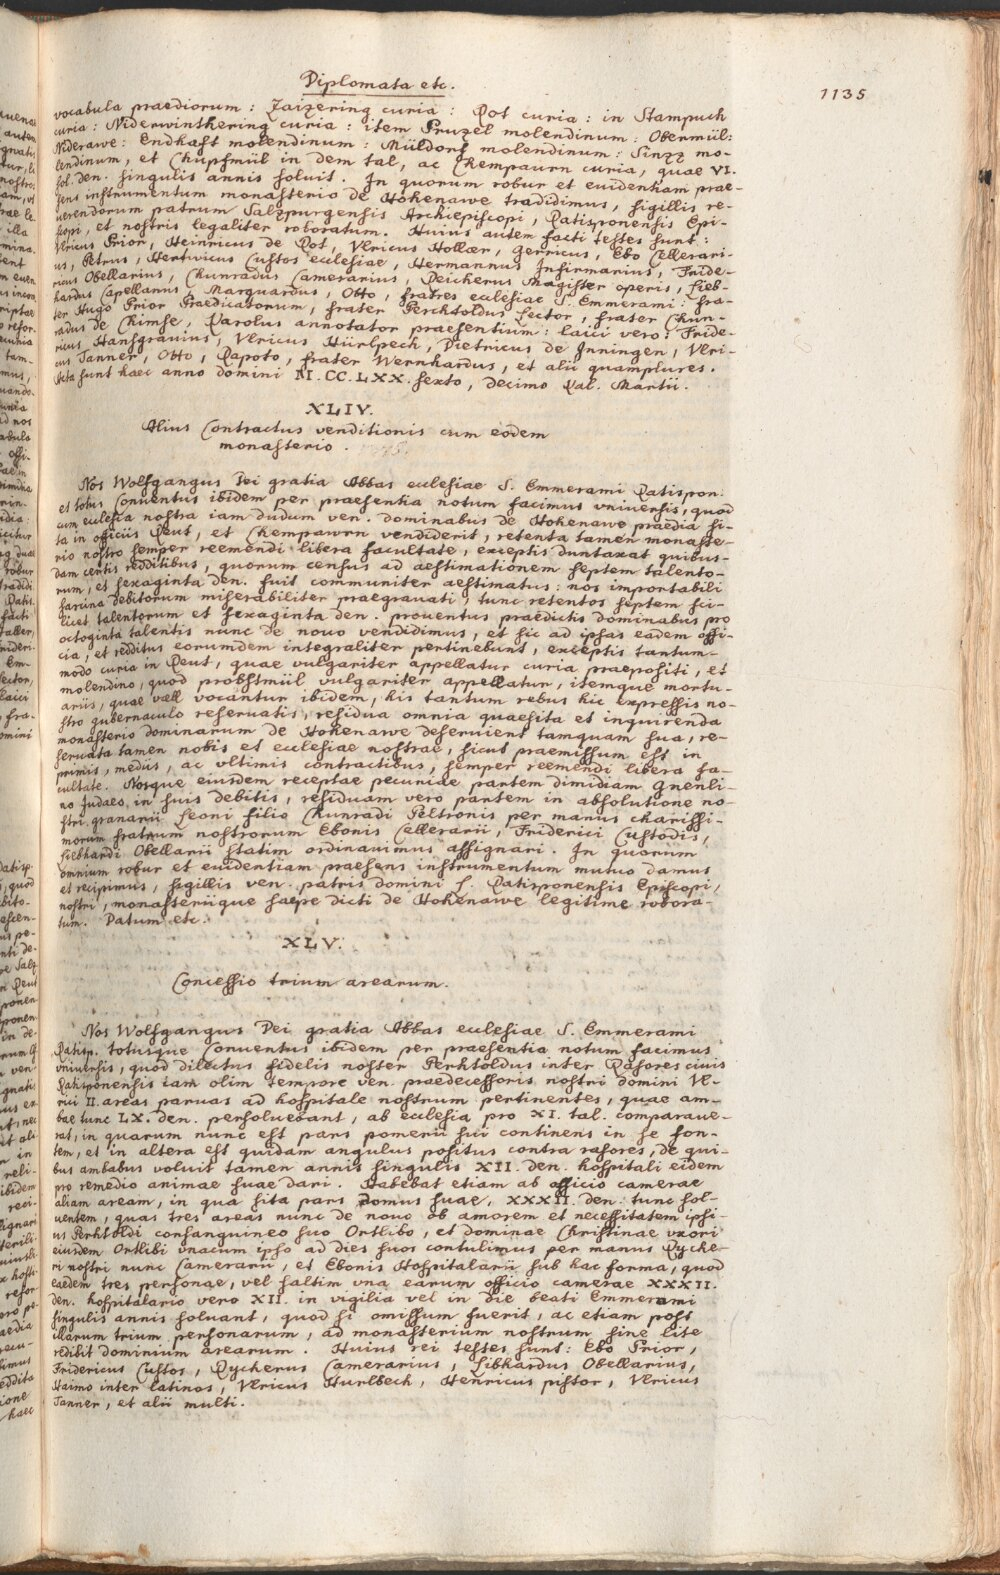 Diplomata etc.
1135
vocabula praediorum : Zaizering curia : Rot curia : in Stampuch
curia : Niderwinthering curia : item Pruzel molendinum : Obermül:
Niderawe : Endhaft molendinum : Müldorf molendinum : Sinzz mo-
lendinum, et Chupfmül in dem tal, ac Chempaurn curia, quae VI.
sol. den. singulis annis soluit. In quorum robur et euidentiam prae-
sens instrumentum monasterio de Hohenawe tradidimus, sigillis re-
uerendorum patrum Salzpurgensis Archiepiscopi, Ratisponensis Epi-
scopi, et nostris legaliter roboratum. Huius autem facti testes sunt :
Vlricus Prior, Heinricus de Rot, Vlricus Hollaer, Gerricus, Ebo Cellerari-
us, Petrus, Hertuicus Custos ecclesiae, Hermannus Infirmarius, Fride-
ricus Obellarius, Chunradus Camerarius, Reicherus Magister operis, Lieb-
hardus Capellanus, Marquardus, Otto, fratres ecclesiae S. Emmerami : fra-
ter Hugo Prior Praedicatorum, frater Perchtoldus Lector, frater Chun-
radus de Chimse, Karolus annotator praesentium : laici vero : Fride-
ricus Hansgrauius, Vlricus Hürlpech, Dietricus de Inningen, Vlri-
cus Tanner, Otto, Rapoto, frater Wernhardus, et alii quamplures.
Acta sunt haec anno domini M.CC.LXX. sexto, decimo Kal. Martii.
XLIV.
Alius Contractus venditionis cum eodem
monasterio.
Nos Wolfgangus Dei gratia Abbas ecclesiae S. Emmerami Ratispon.
et totus Conuentus ibidem per praesentia notum facimus vniuersis, quod
cum ecclesia nostra iam dudum ven. dominabus de Hohenawe praedia si-
ta in officiis Reut, et Chempawrn vendiderit, retenta tamen monaste-
rio nostro semper reemendi libera facultate, exceptis duntaxat quibus-
dam certis redditibus, quorum census ad aestimationem septem talento-
rum, et sexaginta den. fuit communiter aestimatus : nos importabili
sarcina debitorum miserabiliter praegrauati, tunc retentos septem sci-
licet talentorum et sexaginta den. prouentus praedictis dominabus pro
octoginta talentis nunc de nouo vendidimus, et sic ad ipsas eadem offi-
cia, et redditus eorumdem integraliter pertinebunt, exceptis tantum-
modo curia in Reut, quae vulgariter appellatur curia praepositi, et
molendino, quod probstmül vulgariter appellatur, itemque mortu-
ariis, quae vaell vocantur ibidem, his tantum rebus hic expressis no-
stro gubernaculo reseruatis, residua omnia quaesita et inquirenda
monasterio dominarum de Hohenawe deseruient tamquam sua, re-
seruata tamen nobis et ecclesiae nostrae, sicut praemissum est in
primis, mediis, ac vltimis contractibus, semper reemendi libera fa-
cultate. Nosque eiusdem receptae pecuniae partem dimidiam Gnenli-
no Judaeo in suis debitis, residuam vero partem in absolutione no-
stri granarii Leoni filio Chunradi Peltronis per manus charissi-
morum fratrum nostrorum Ebonis Cellerarii, Friderici Custodis,
Liebhardi Obellarii statim ordinauimus assignari. In quorum
omnium robur et euidentiam praesens instrumentum mutuo damus
et recipimus, sigillis ven. patris domini L. Ratisponensis Episcopi,
nostri, monasteriique saepe dicti de Hohenawe legitime robora-
tum. Datum etc.
XLV.
Concessio trium arearum.
Nos Wolfgangus Dei gratia Abbas ecclesiae S. Emmerami
Ratisp. totusque Conuentus ibidem per praesentia notum facimus
vniuersis, quod dilectus fidelis noster Perhtoldus inter Rasores ciuis
Ratisponensis iam olim tempore ven. praedecessoris nostri domini Vl-
rici II. areas paruas ad hospitale nostrum pertinentes, quae am-
bae tunc LX. den. persoluebant, ab ecclesia pro XI. tal. comparaue-
rat, in quarum nunc est pars pomerii sui continens in se fon-
tem, et in altera est quidam angulus positus contra rasores, de qui-
bus ambabus voluit tamen annis singulis XII. den. hospitali eidem
pro remedio animae suae dari. Habebat etiam ab officio camerae
aliam aream, in qua sita pars domus suae, XXXII. den. tunc sol-
uentem, quas tres areas nunc de nouo ob amorem et necessitatem ipsi-
us Perhtoldi consanguineo suo Ortlibo, et dominae Christinae vxori
eiusdem Ortlibi vnacum ipso ad dies suos contulimus per manus Ryche-
ri nostri nunc Camerarii, et Ebonis Hospitalarii sub hac forma, quod
eaedem tres personae, vel saltim vna earum officio camerae XXXII.
den. hospitalario vero XII. in vigilia vel in die beati Emmerami
singulis annis soluant, quod si omissum fuerit, ac etiam post
illarum trium personarum, ad monasterium nostrum sine lite
redibit dominium arearum. Huius rei testes sunt : Ebo Prior,
Fridericus Custos, Rycherus Camerarius, Libhardus Obellarius,
Haimo inter latinos, Vlricus Hurlbech, Henricus pistor, Vlricus
Tanner, et alii multi.